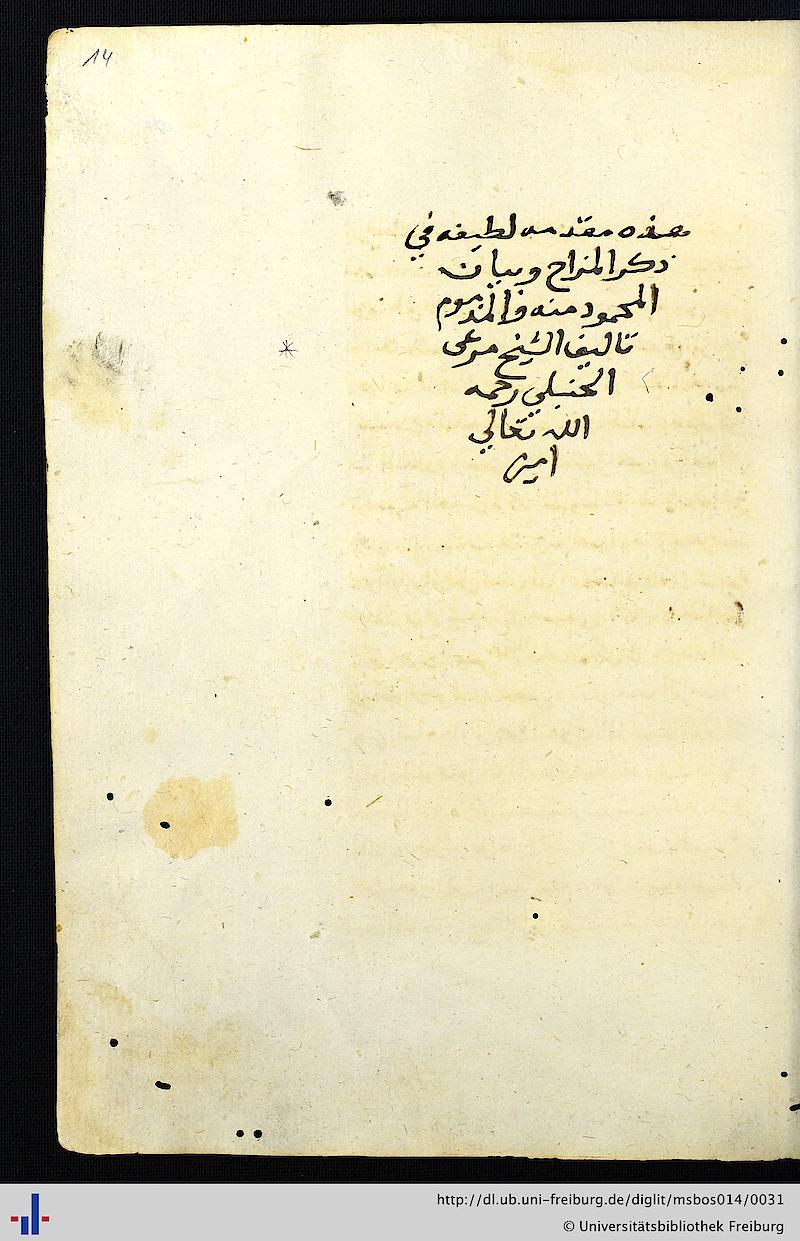 14
هذه مقدمه لطيفه في
ذكر المزاح وبيان
المحمود منه والمذموم
تاليف الشيخ مرعى
الحنبلي رحمه
الله تعالي
امين
http://dl.ub.uni-freiburg.de/diglit/msbos014/0031
© Universitätsbibliothek Freiburg